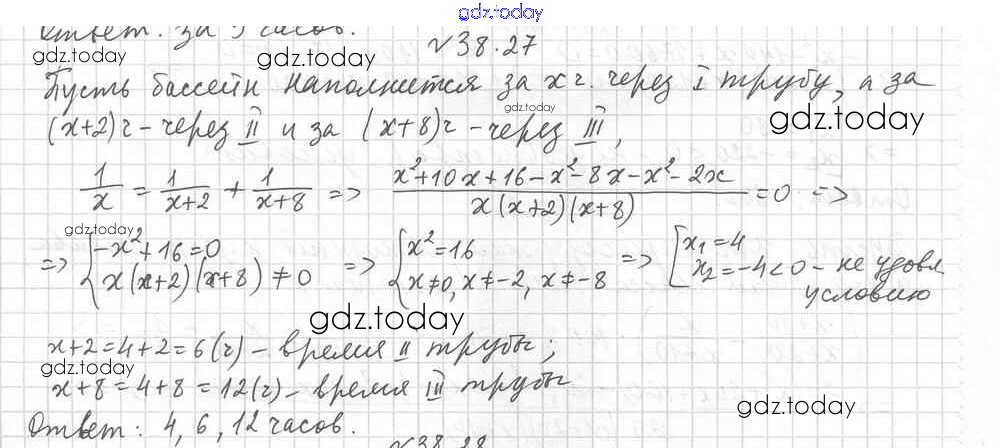 gdz.today
Ответ: за 5 часов.
gdz.today
№38.27
gdz.today
Пусть бассейн наполнится за x ч. через I трубу, а за
gdz.today
(x+2)ч – через II и за (x+8)ч – через III,
gdz.today
1/x = 1/(x+2) + 1/(x+8) => (x²+10x+16−x²−8x−x²−2x)/(x(x+2)(x+8)) =0 =>
gdz.today
=> { −x²+16=0 ; x(x+2)(x+8)≠0 => { x²=16 ; x≠0, x≠−2, x≠−8 => [ x₁=4 ; x₂=−4<0 – не удовл
условию
gdz.today
x+2=4+2=6(ч) – время II трубы;
gdz.today
x+8=4+8=12(ч) – время III трубы
gdz.today
Ответ: 4, 6, 12 часов.
№38.28